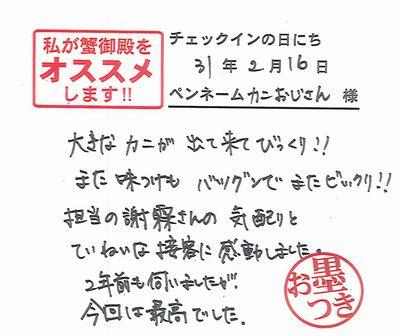 私が蟹御殿を
オススメ
します!!
チェックインの日にち
31年2月16日
ペンネームカニおじさん 様
大きな カニが 出て来てびっくり!!
また 味つけも バツグンで またビックリ!!
担当の謝霖さんの 気配りと
ていねいな接客に 感動しました。
2年前も伺いましたが!
今回は最高でした。
お墨つき